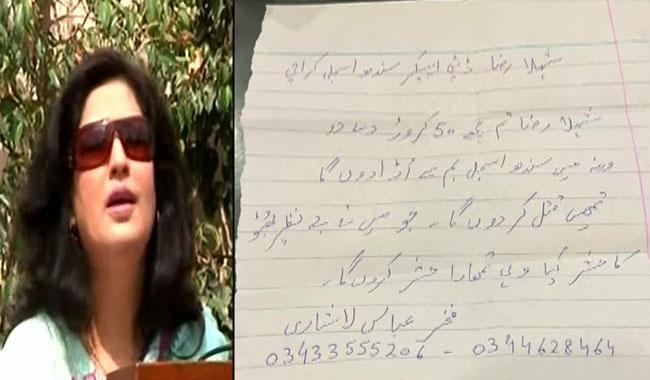 شہلا رضا ڈپٹی اسپیکر سندھ اسمبلی کراچی
شہلا رضا تم مجھے 50 کروڑ دے دو
ورنہ میں سندھ اسمبلی بم سے اڑا دوں گا
تمہیں قتل کر دوں گا ۔ جو میں نے بے نظیر بھٹو
کا حشر کیا وہی تمہارا حشر کروں گا ۔
عباس لاشاری
03433555206 - 0344628464